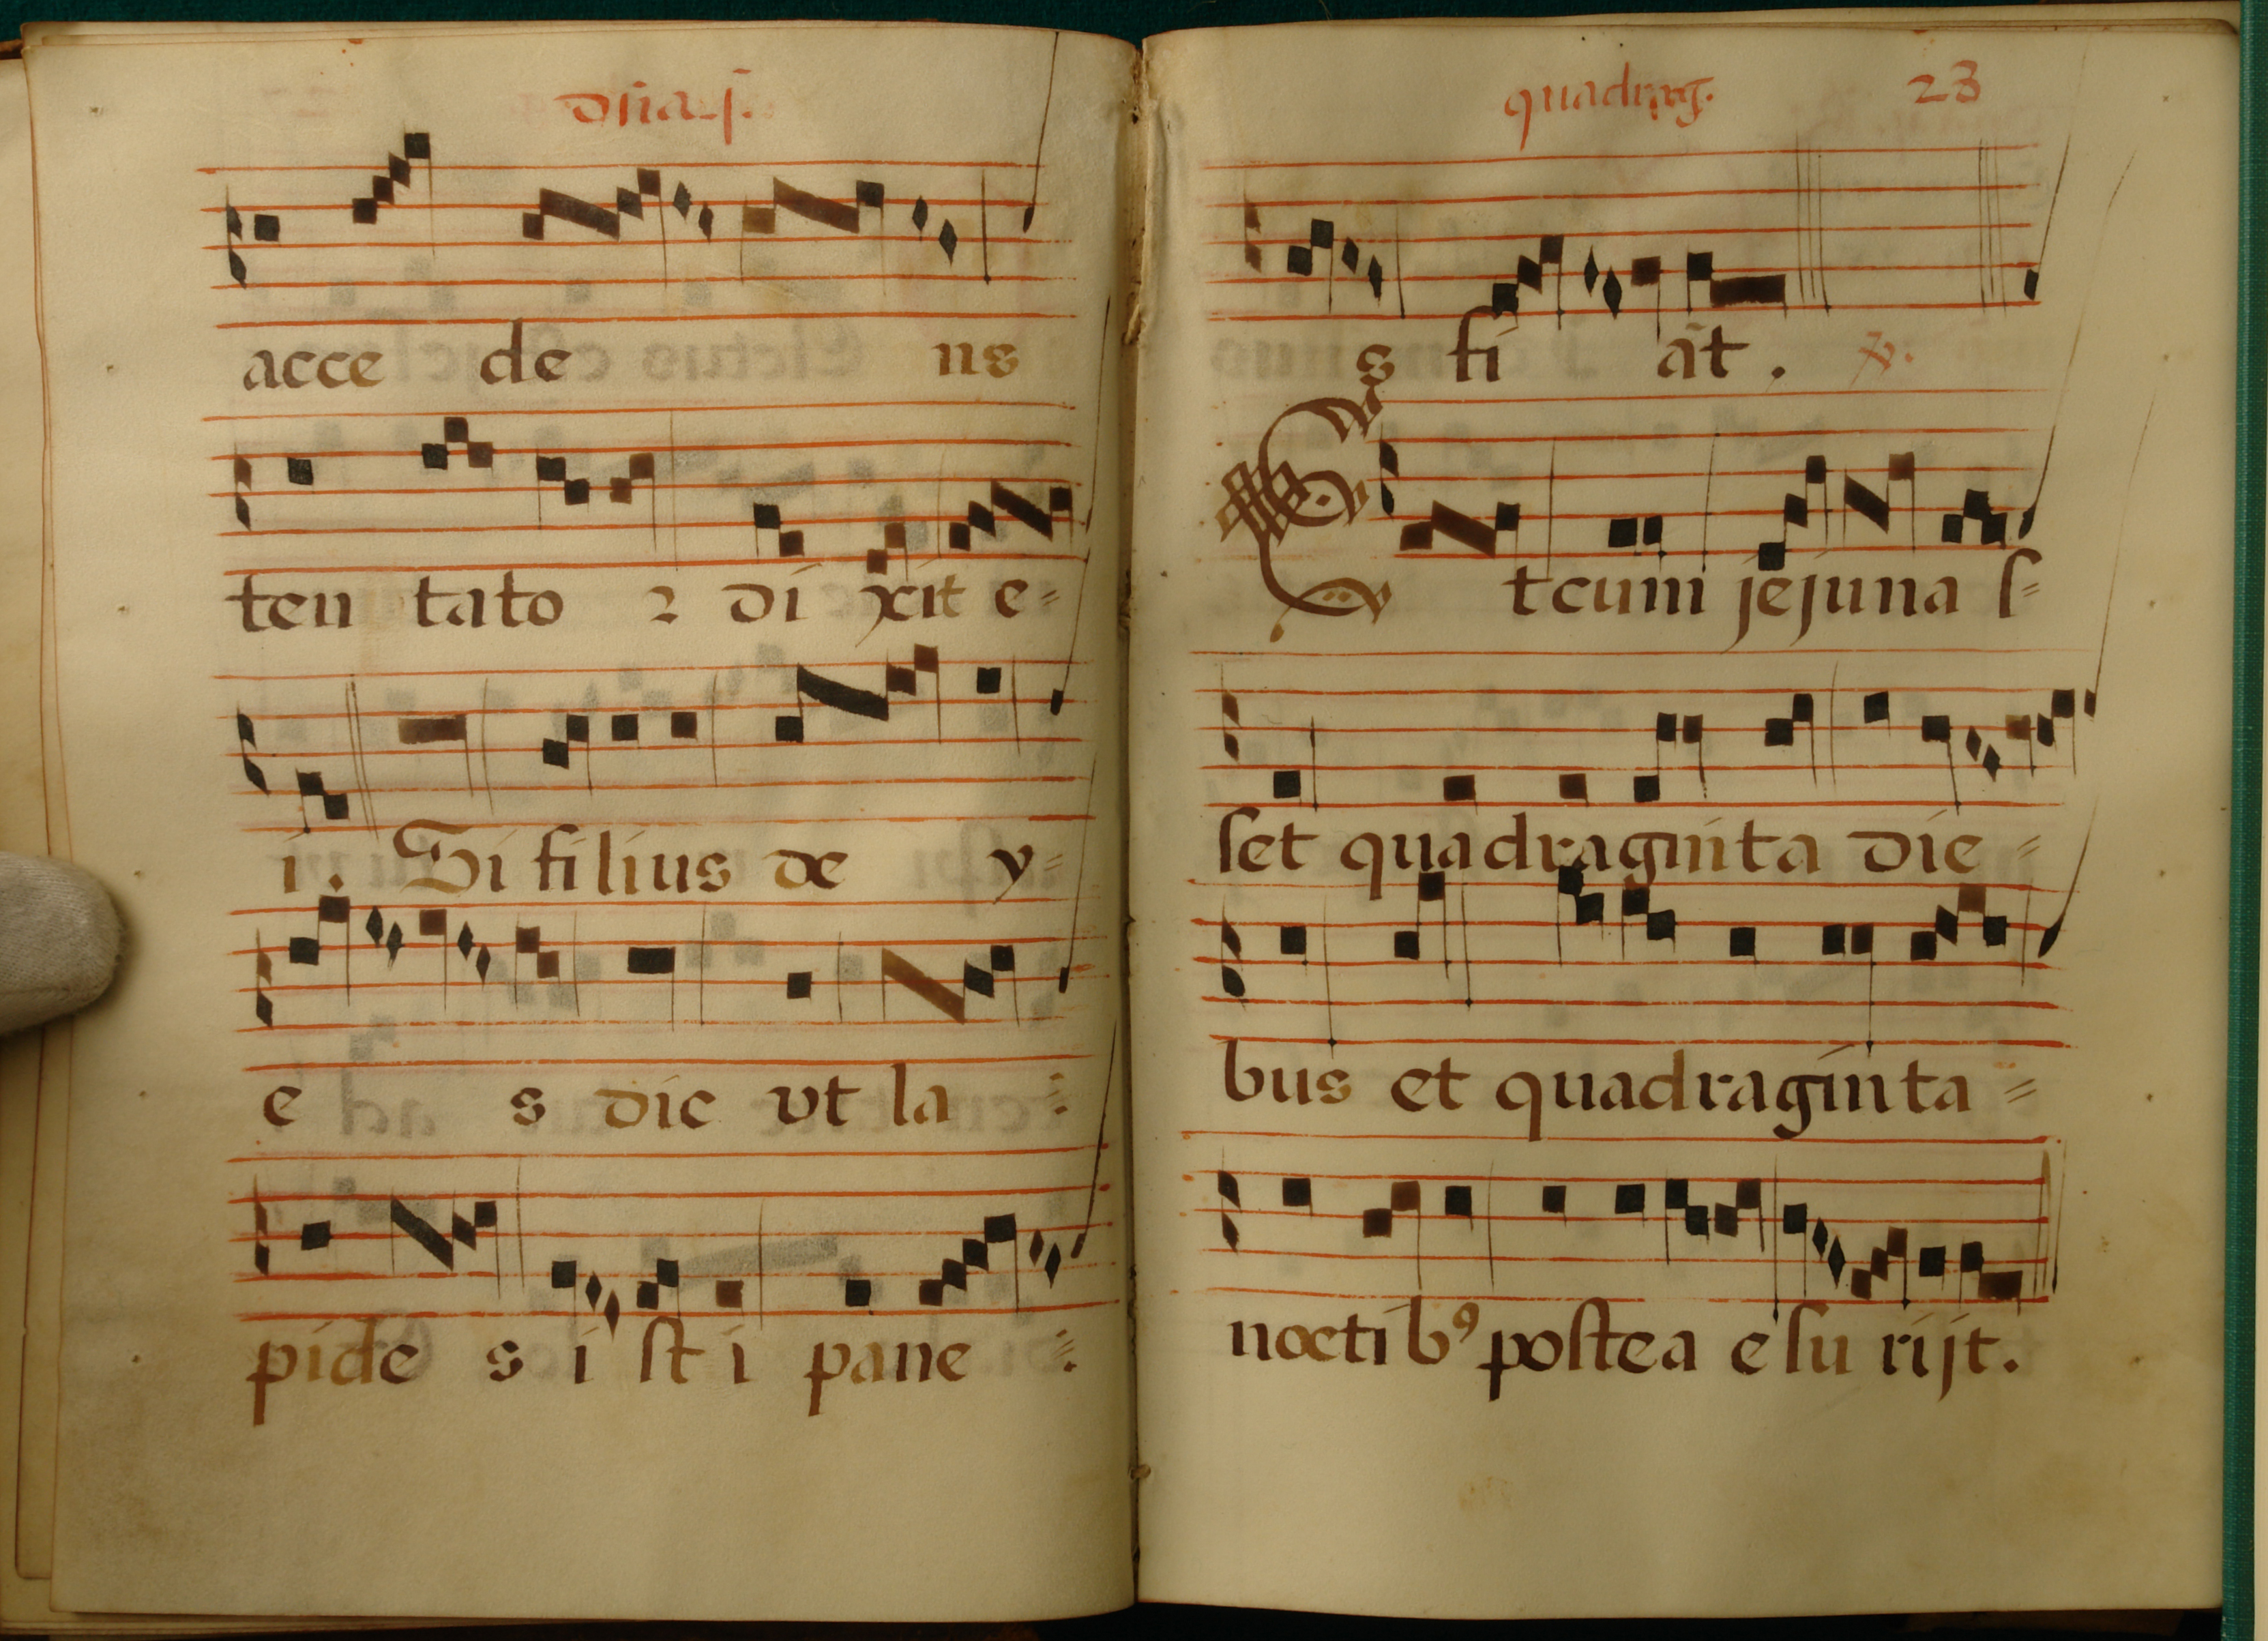 dnia j.
acce de ns
ten tato 2 di xit e=
i. Si filius de y=
e s dic vt la :
pide s i st i pane :.
quadrag. 23
s fi ãt. ℣.
Et cum jejuna ſ=
ſet quadraginta die =
bus et quadraginta =
noctib⁹ poſtea eſu rijt.